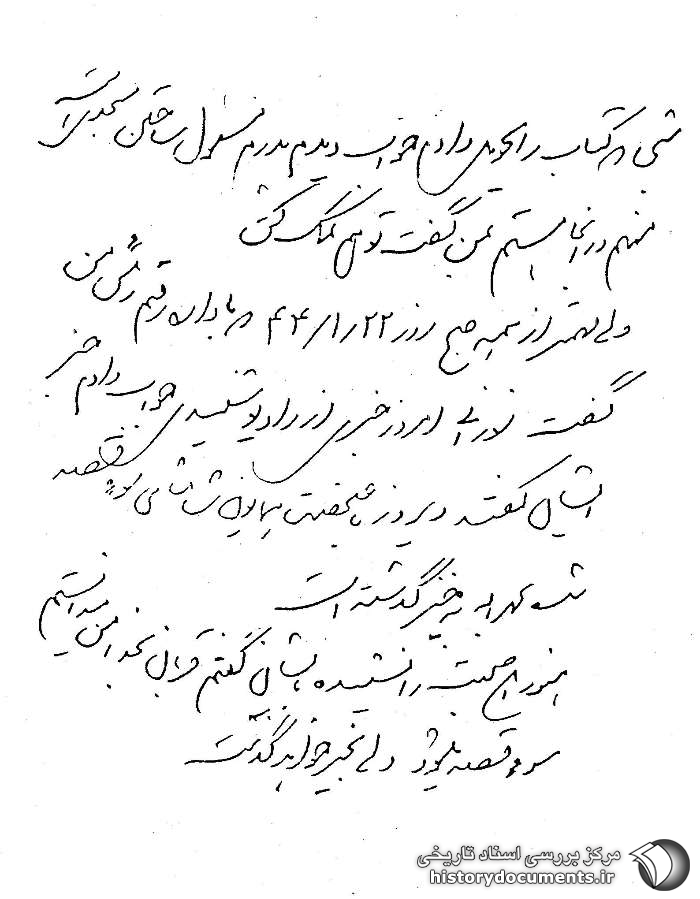 شبی که کتاب را تحویل دادم خواب دیدم پدرم مسئول ساختن مسجدی است
منهم در آنجا هستم بمن گفت تو هم کمک کن
ولی مهمتر از همه صبح روز ۴۴/۱/۲۲ که با اداره رفتم رئیس من
گفت امروز خبری از رادیو شنیدی جواب دادم خیر
ایشان گفتند دیروز باعلیحضرت همایون شاهنشاهی سوء قصد
شده به خیر گذشته است
هنوز این صحبت را نشنیده بایشان گفتم قربان بخدا من میدانستم
سوء قصد میشود ولی بخیر خواهد گذشت
مرکز بررسی اسناد تاریخی
historydocuments.ir